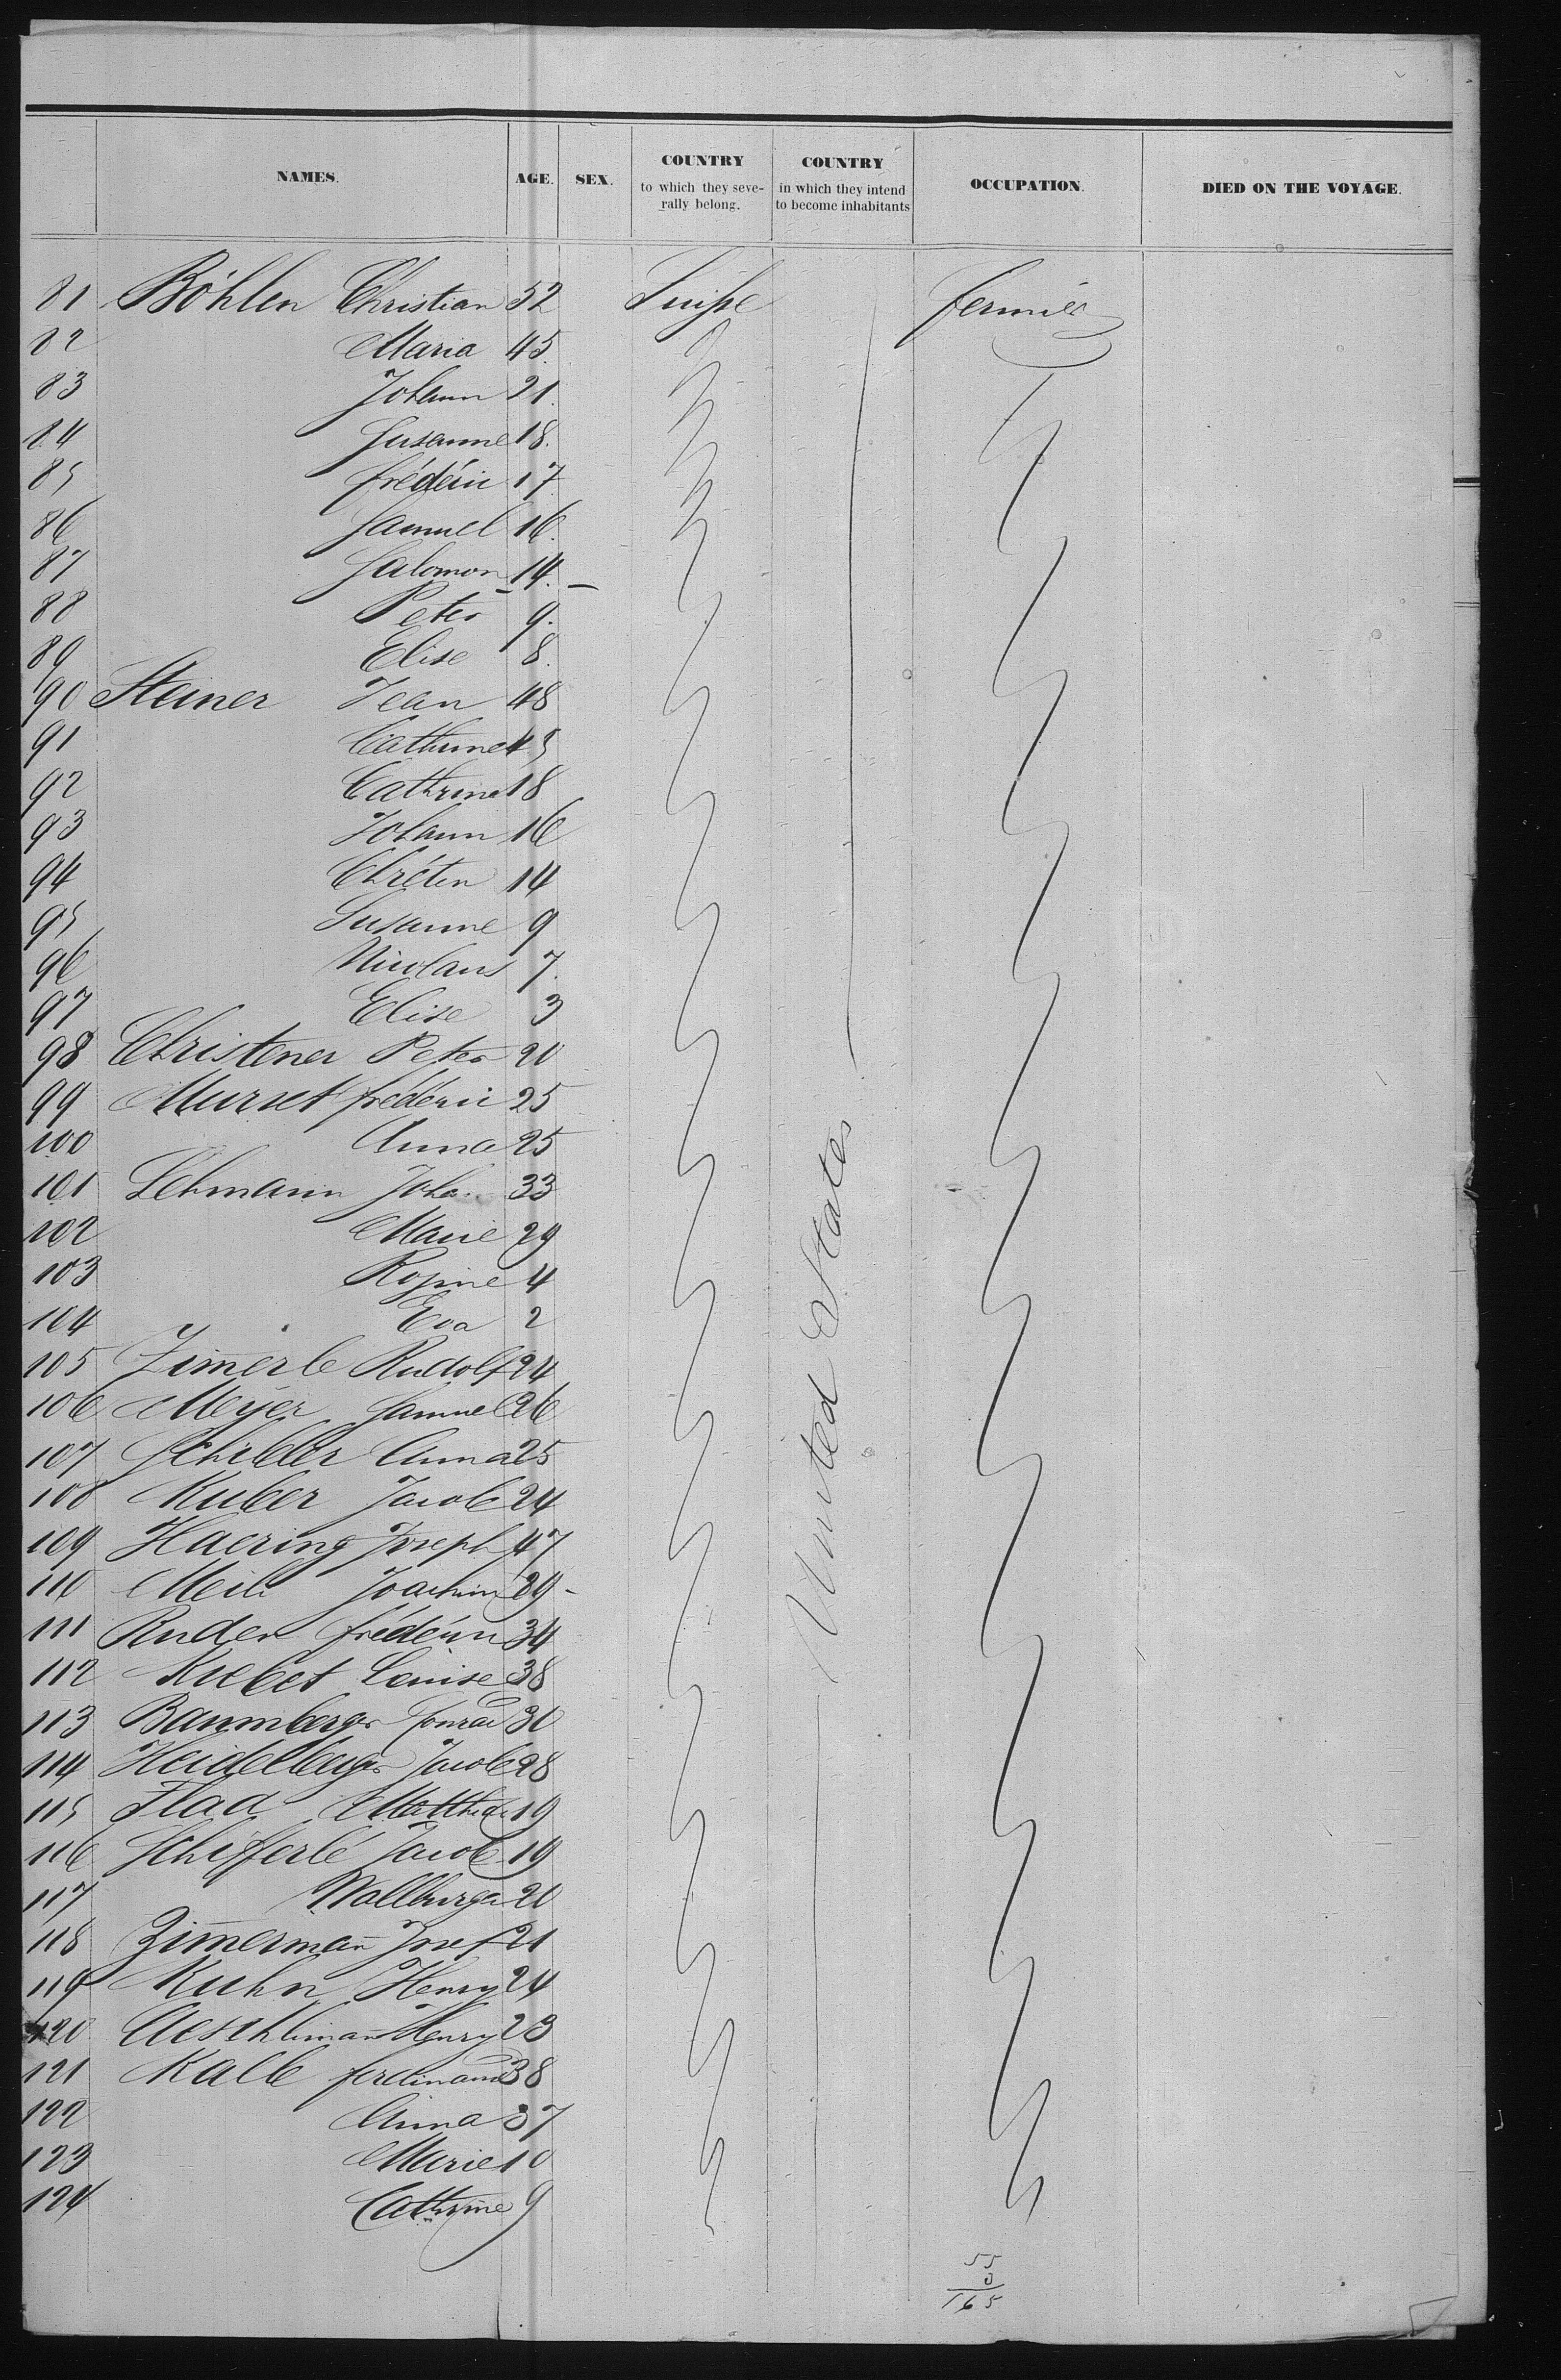 NAMES. AGE. SEX. COUNTRY to which they seve-rally belong. COUNTRY in which they intend to become inhabitants OCCUPATION. DIED ON THE VOYAGE.
81 Böhlen Christian 52 Suisse fermier
82 Maria 45.
83 Johann 21.
84 Susanne 18.
85 frédéric 17
86 Samuel 16.
87 Salomon 14. –
88 Peter 9.
89 Elise 8.
90 Steiner Jean 48
91 Cathrine 45
92 Cathrine 18
93 Johann 16
94 Chréten 14
95 Susanne 9
96 Nicolaus 7.
97 Elise 3
98 Christener Peter 20
99 Murset frédéric 25
100 Anna 25
101 Lehmann Joha. 33
102 Marie 29
103 Rosine 4
104 Eva 2
105 Zim̄erle Rudolf 24
106 Meÿer Samuel 26
107 Anna 25
108 Kuber Jacob 24
109 Haering Joseph 47
110 Meili Joachim 29 -
111 Ruder 34
112 Louise 38
113 Baumberger Conrad 30
114 Heidelberger Jacob 28
115 Flad 19
116 Schifferlé Jacob 19
117 Wallburga 20
118 Zim̄erman̄ Josef 21
119 Kuhn Henry 24
120 Aeschliman̄ Henry 23
121 Kalb ferdinand 38
122 Anna 37
123 Marie 10
124 Cathrine 9
United States
55
165